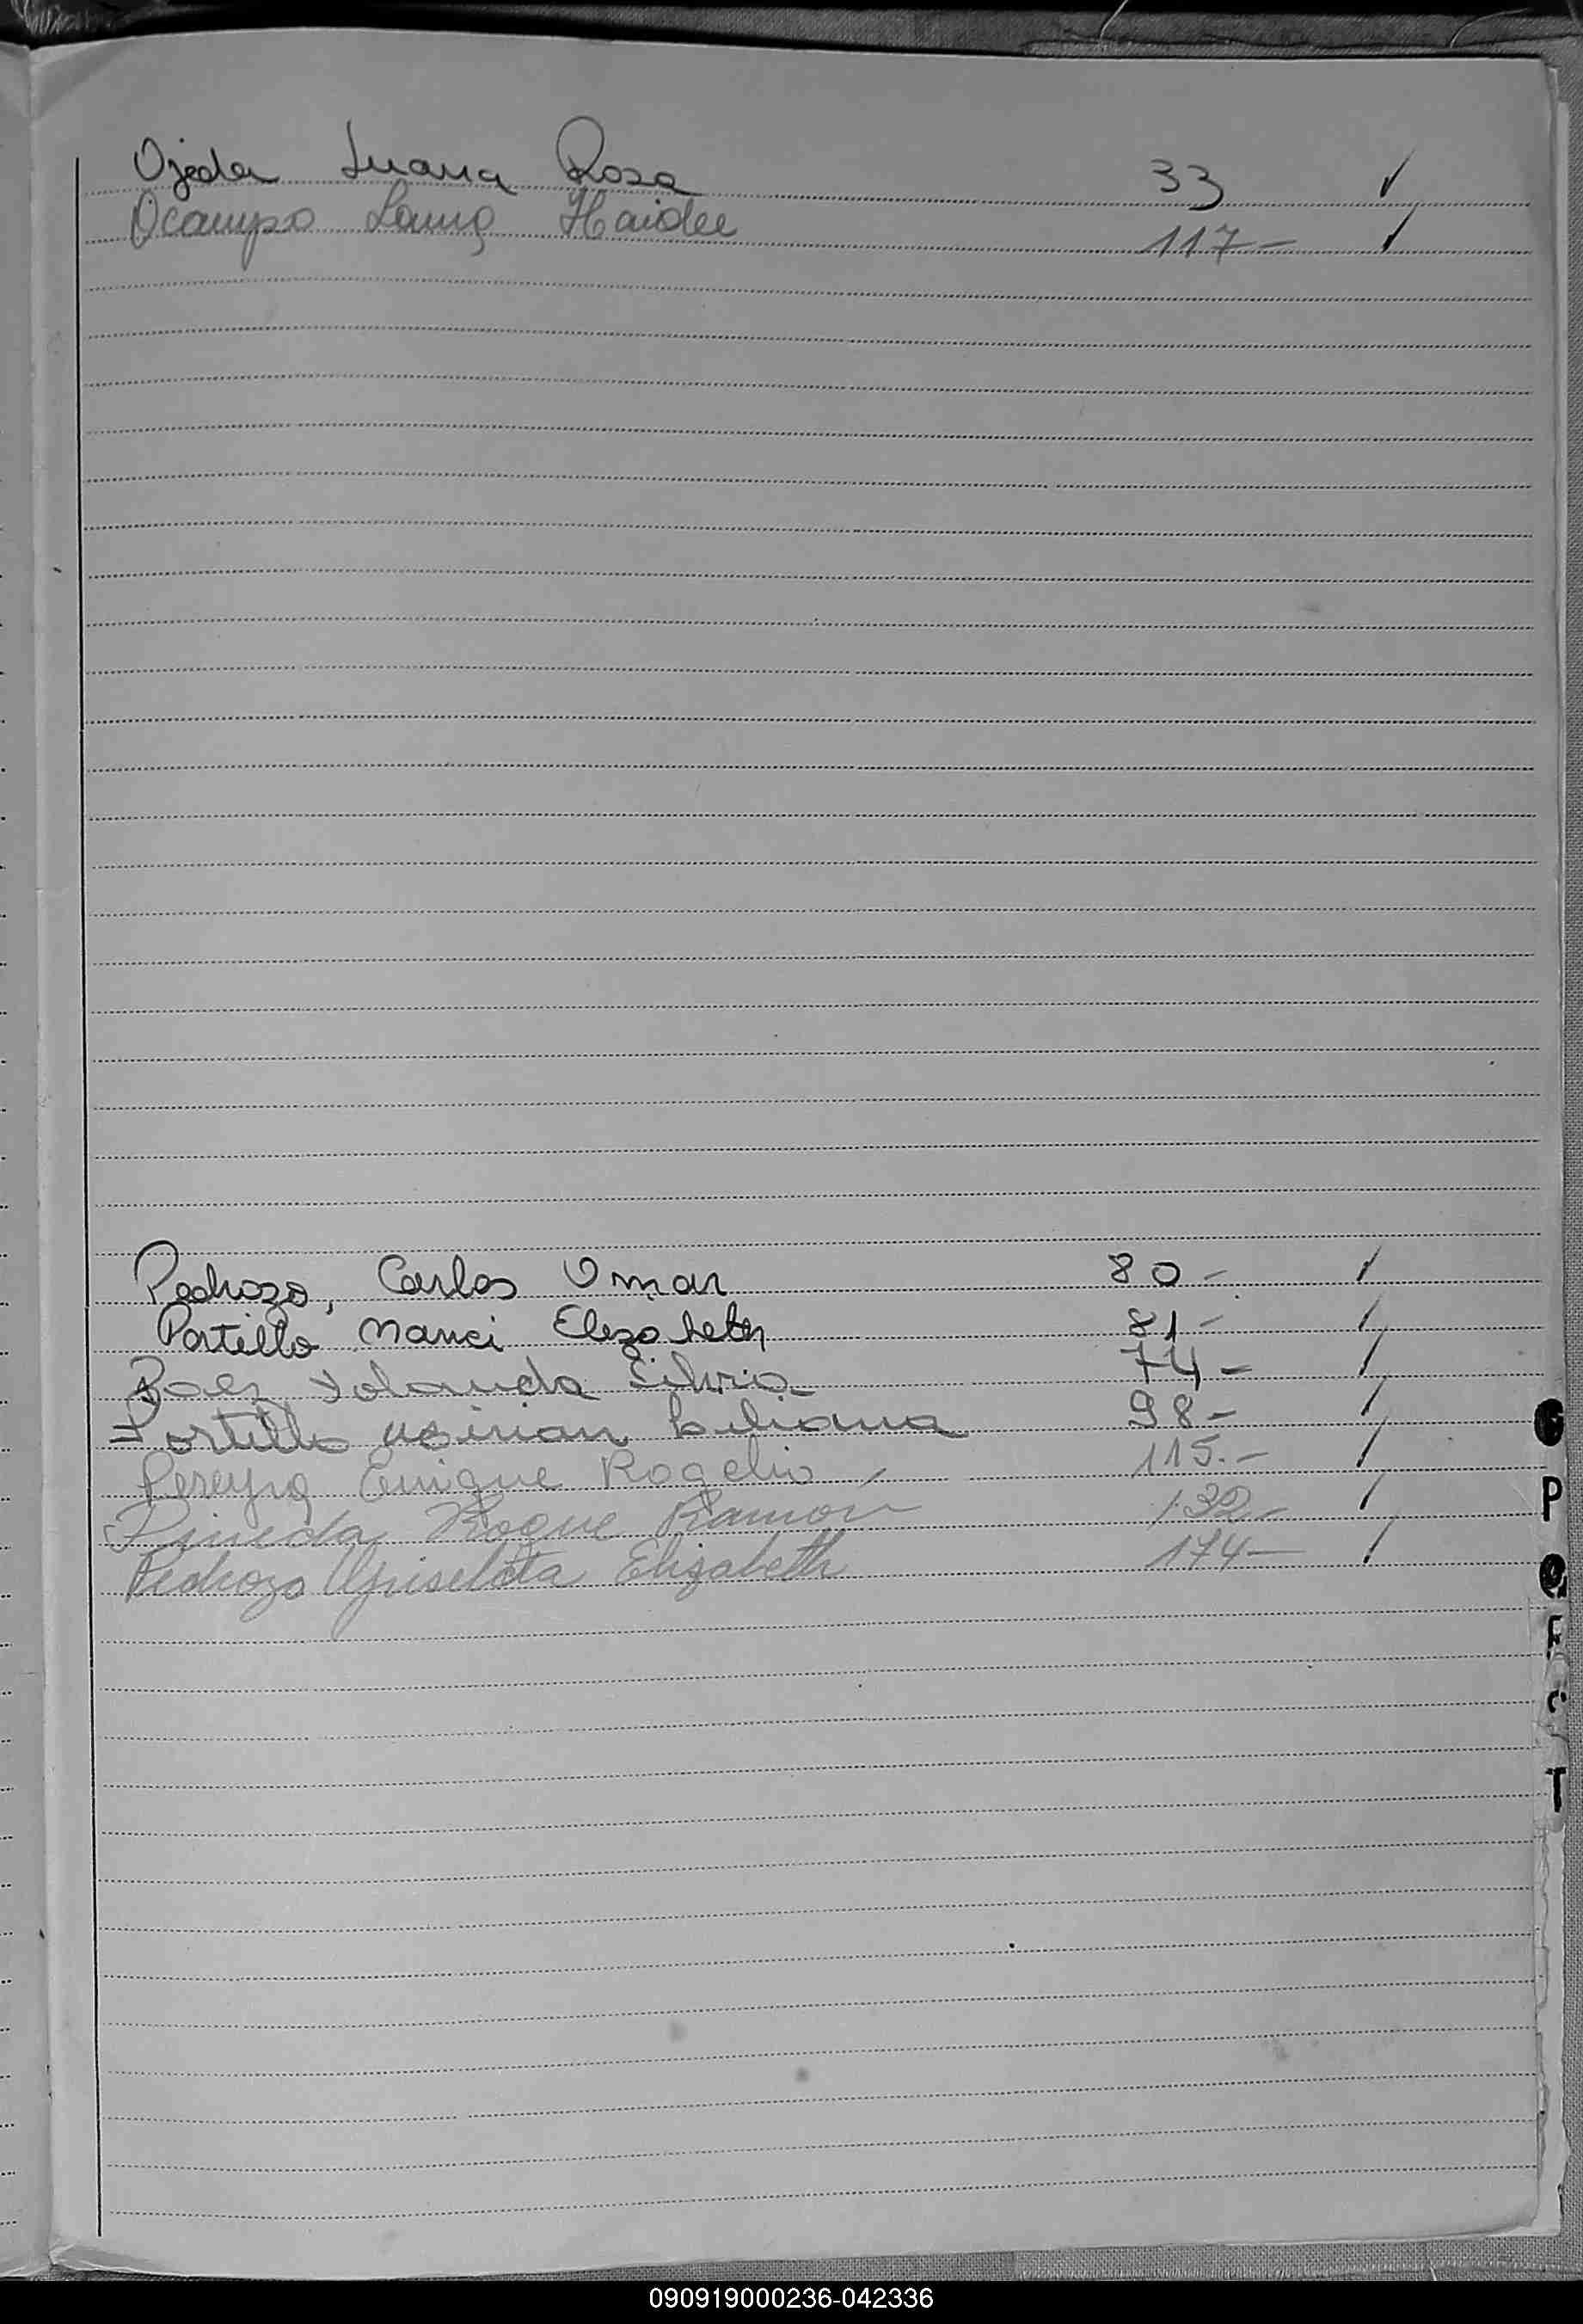 Ojeda Juana Rosa 33 ✓
Ocampo Laura Haidee 117- ✓
Pedrozo, Carlos Omar 80- ✓
Portillo Nanci Elezabeth 81- ✓
Paez Yolanda Silvia 74- ✓
Portillo Mirian Liliana 98- ✓
Pereyra Enrique Rogelio 115.- ✓
Pineda Roque Ramón 132- ✓
Pedrozo Griselda Elizabeth 174- ✓
P
T
090919000236-042336